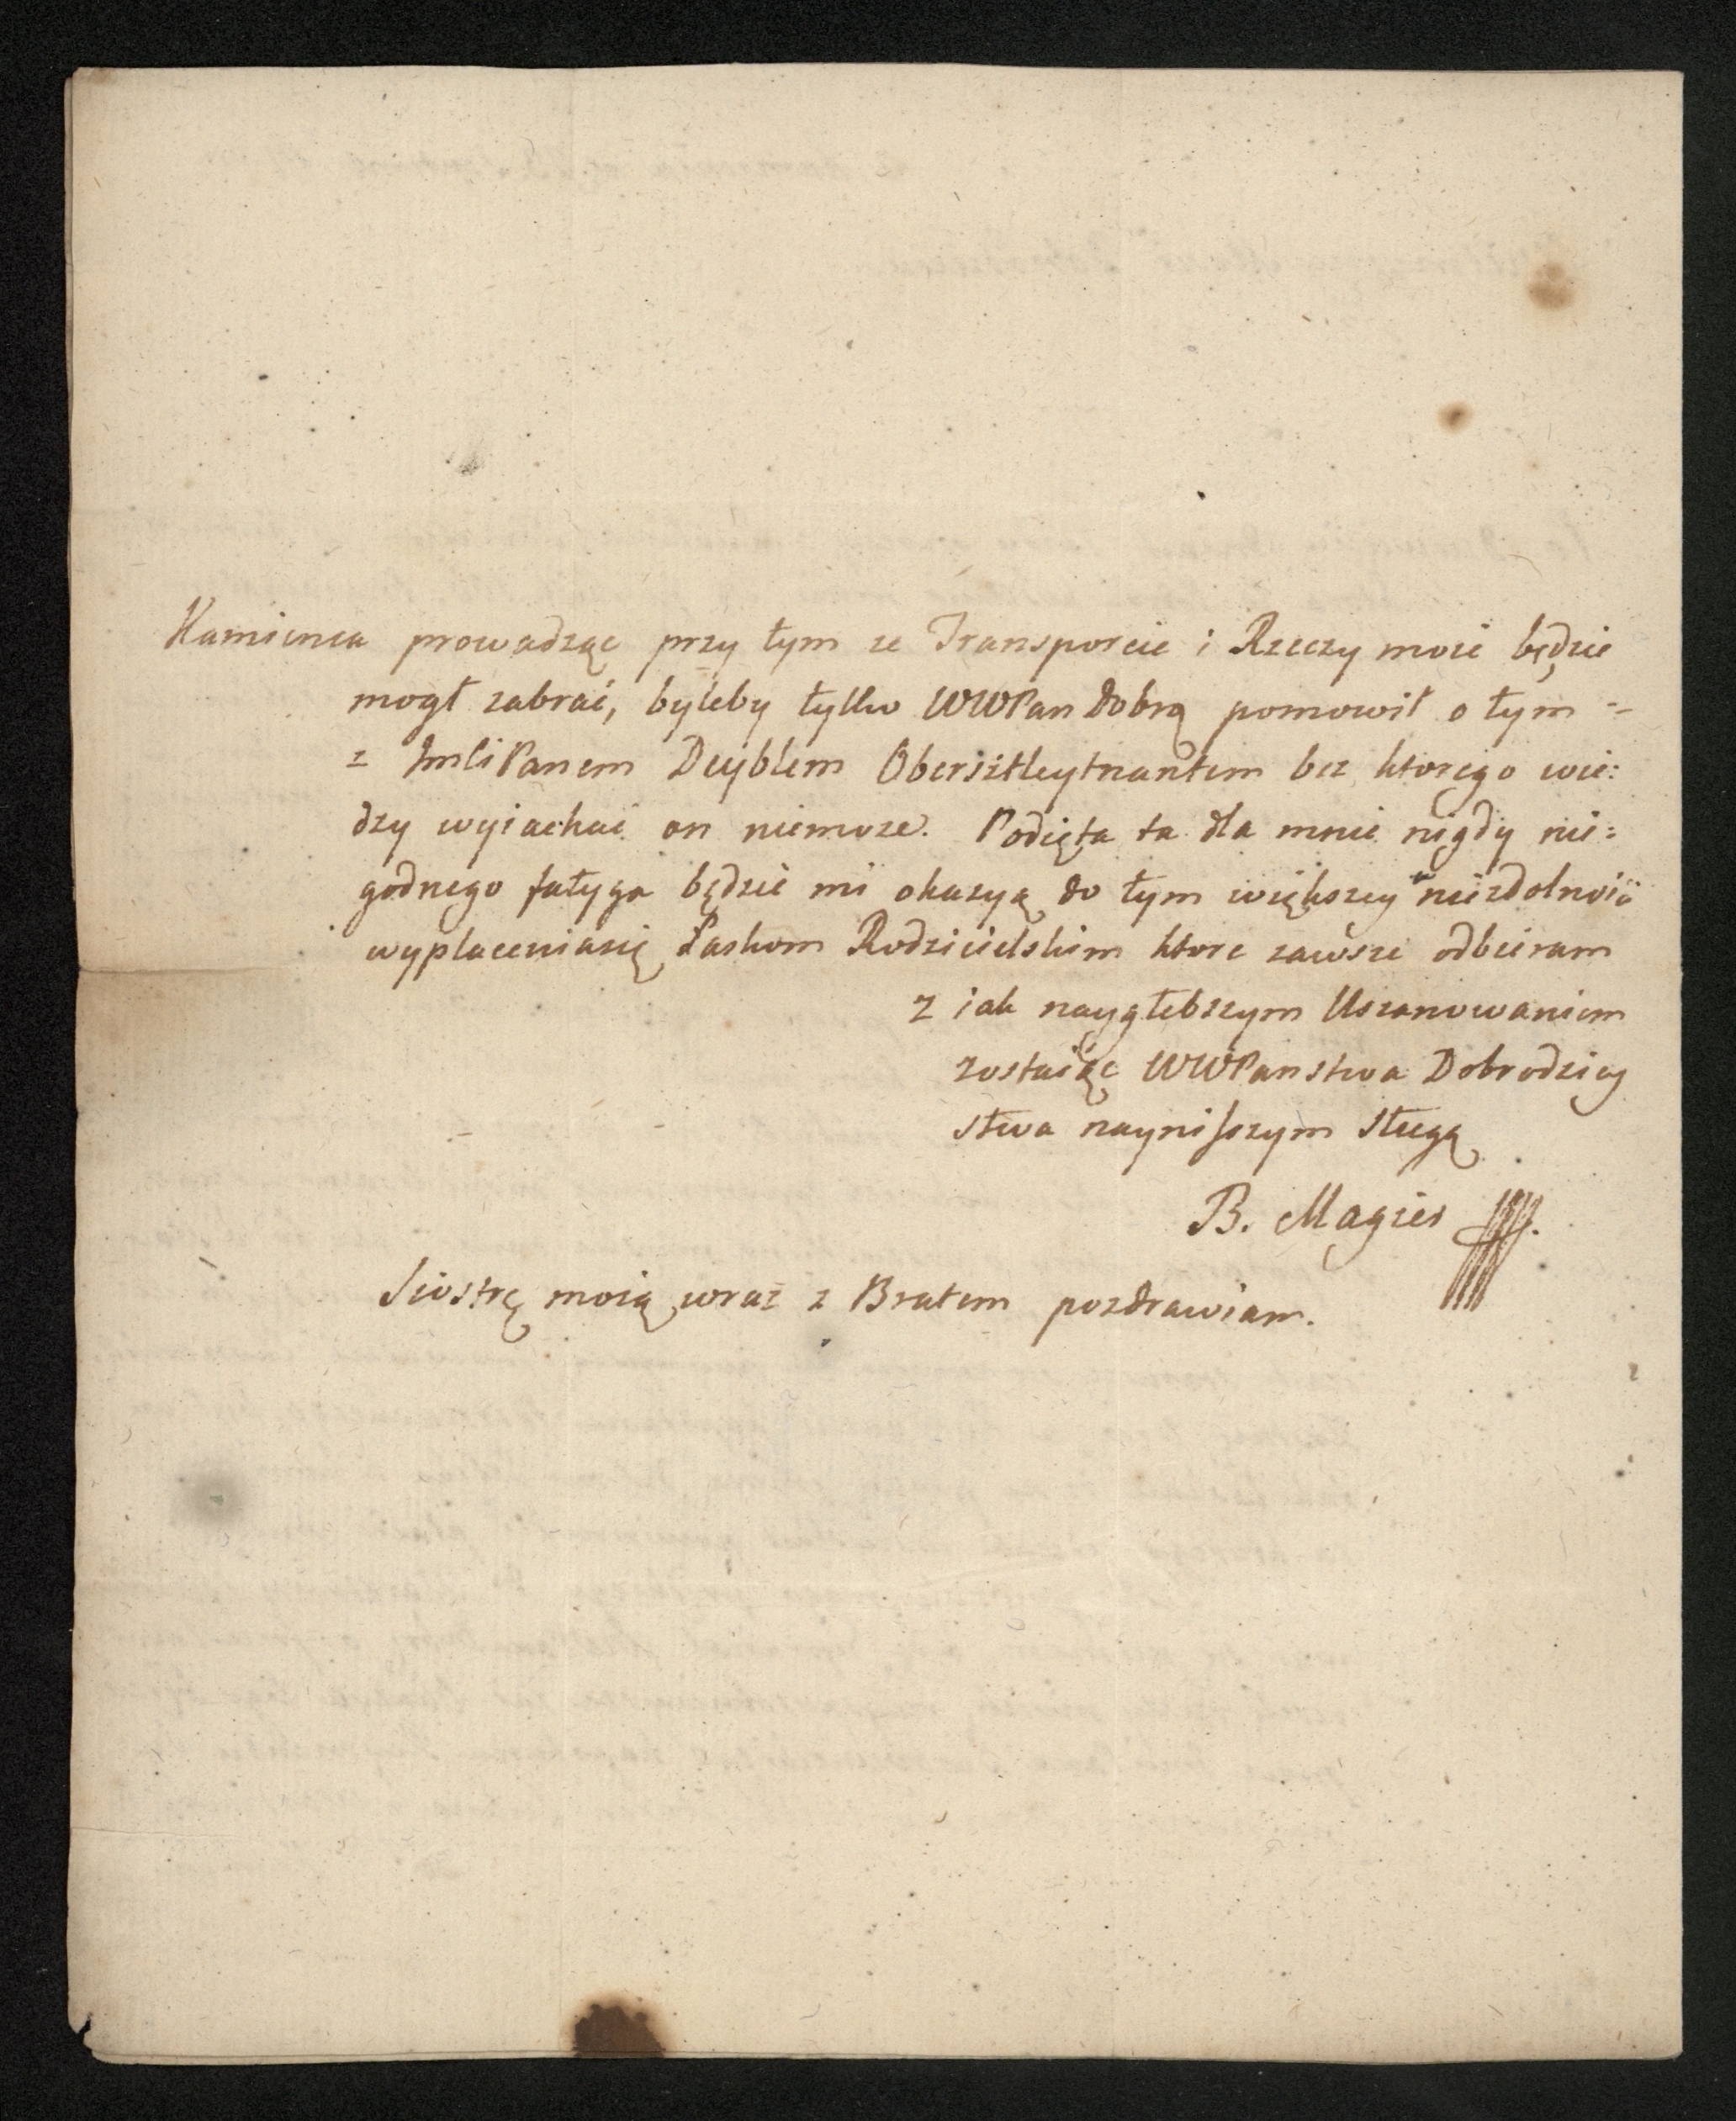 Kamienca prowadząc przy tym ze Transporcie i Rzeczy moie będzie
mogł zabrać, byleby tylko WWPan Dobrą pomowił o tym =
z ImCiPanem Deyblem Obersztleytnantem bez ktorego wie:
dzy wyiachać on niemoze. Podięta ta dla mnie nigdy nie:
godnego fatyga będzie mi okazyą do tym większey niezdolności
wypłaceniasię Łaskom Rodzicielskim ktore zawsze odbieram
z iak naygłebszym Uszanowaniem
zostaiąc WWPanstwa Dobrodziey
stwa nayniszszym Sługą
B. Magier
Siostrę moią wraz z Bratem pozdrawiam.